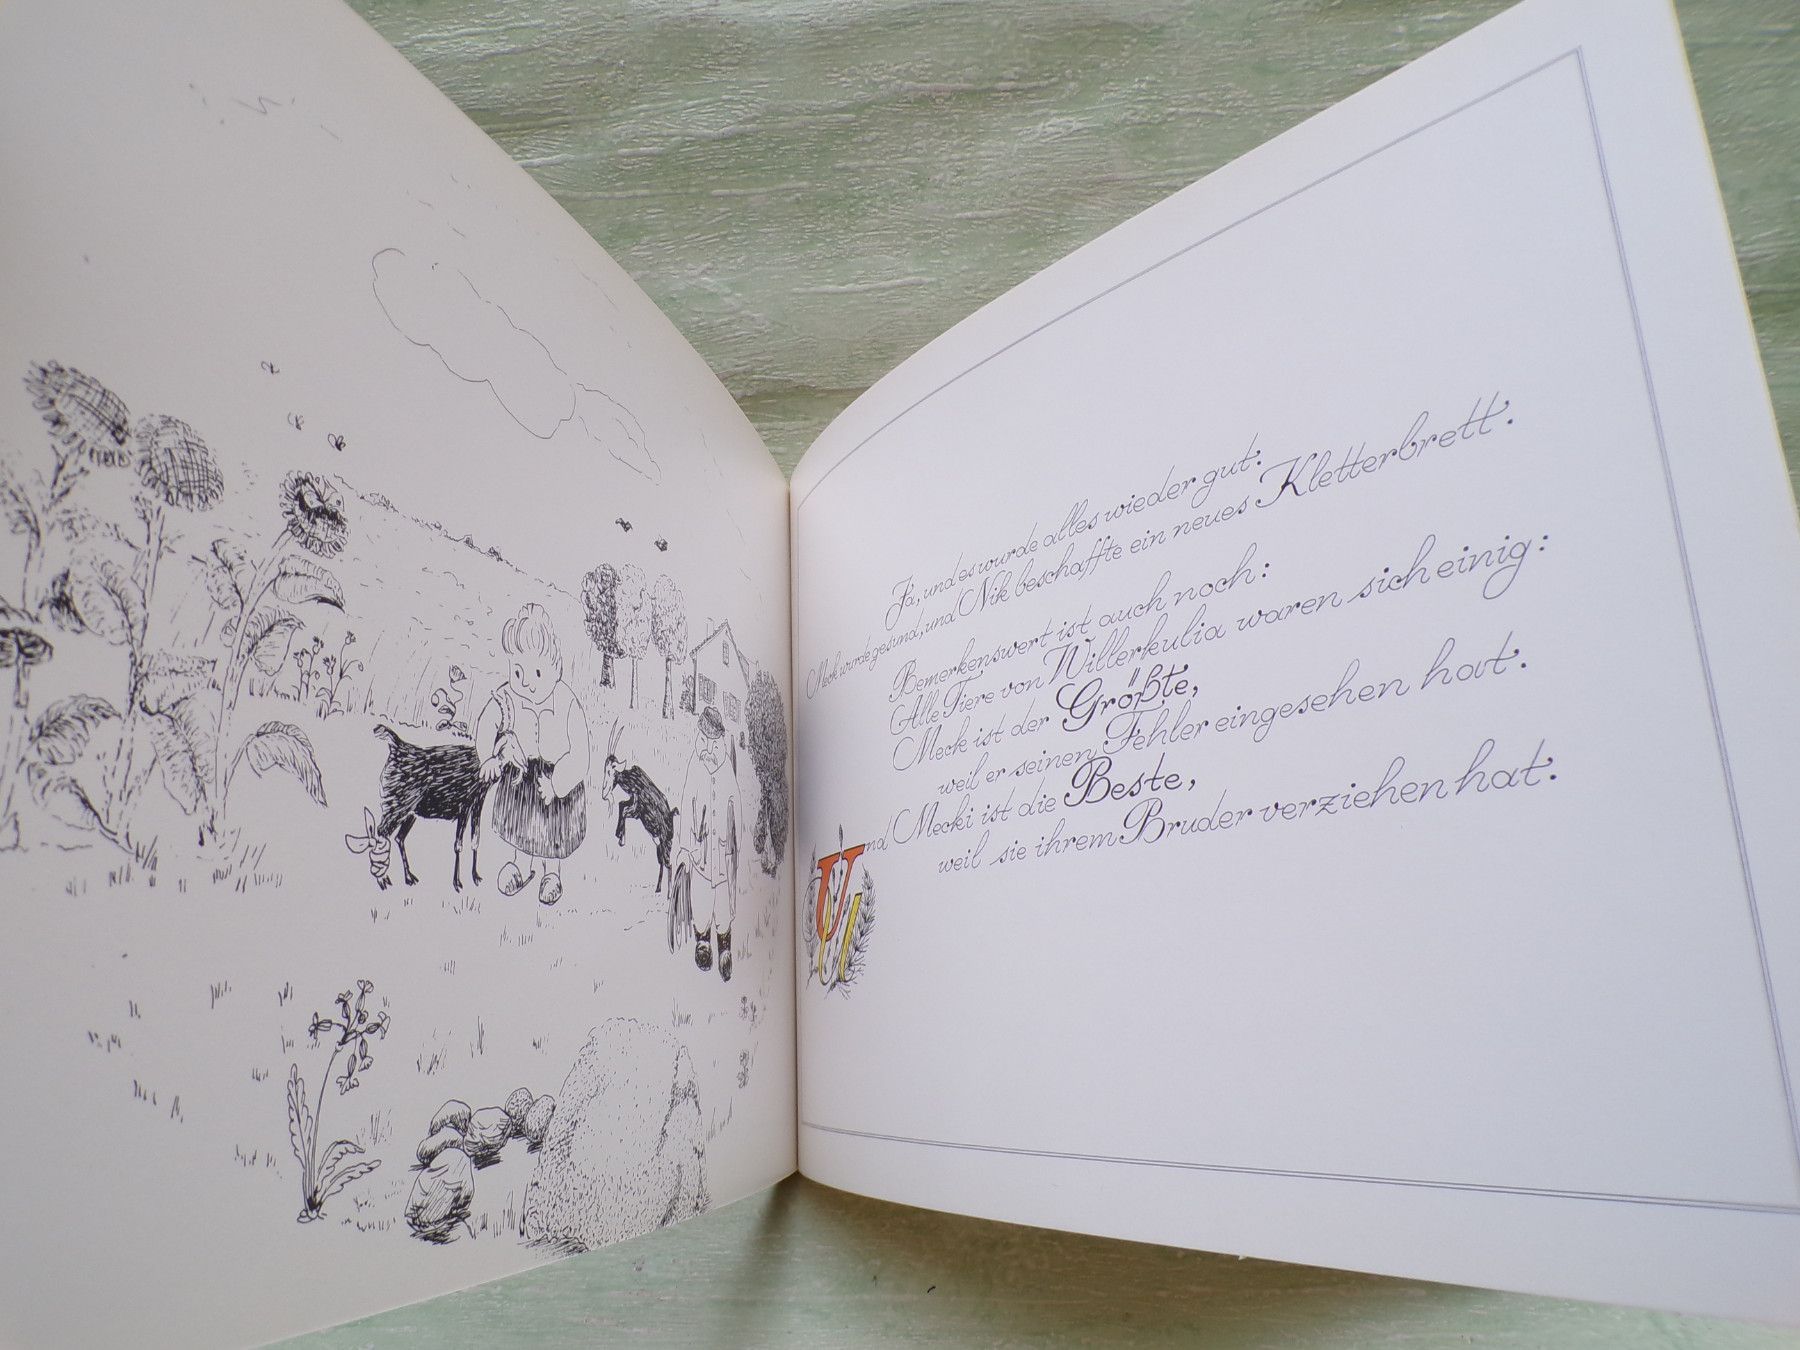 Ja, und es wurde alles wieder gut:
Meck wurde gesund, und Nik beschaffte ein neues Kletterbrett.
Bemerkenswert ist auch noch:
Alle Tiere von Willerkulia waren sich einig:
Meck ist der Größte,
weil er seinen Fehler eingesehen hat.
Und Mecki ist die Beste,
weil sie ihrem Bruder verziehen hat.